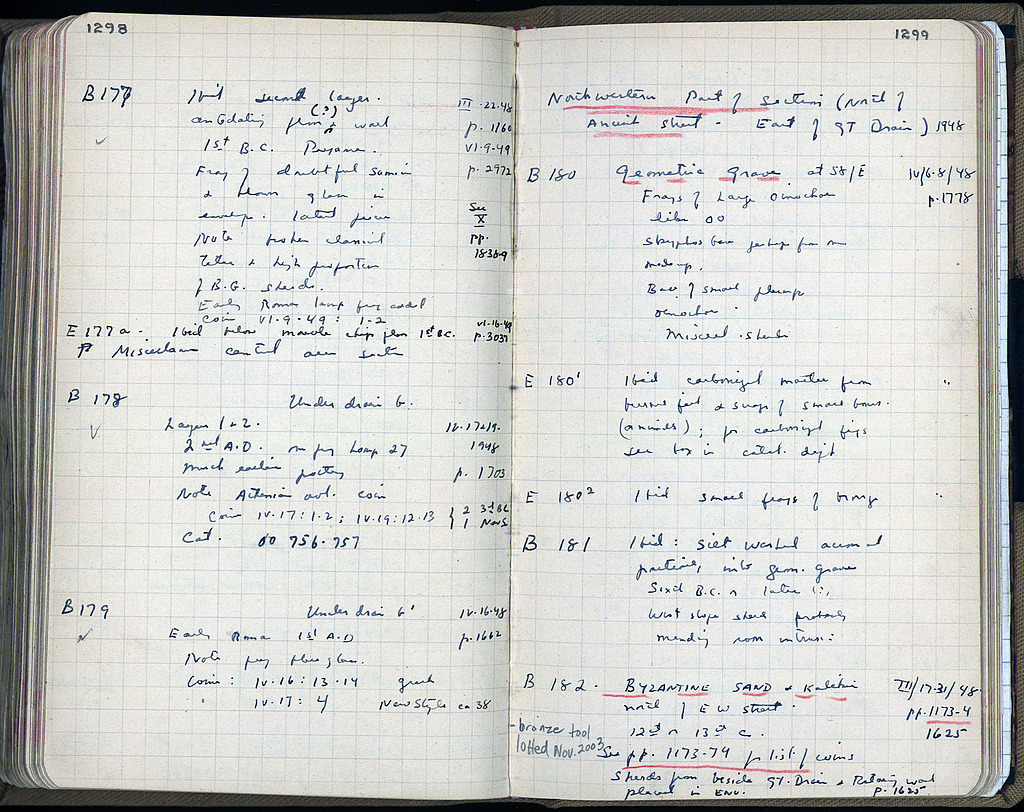 1298
B 177 Ibid second layer. III-22-48
antedating floor (?) & wall p. 1160
1st B.C. VI-9-49
Frag of doubtful Samian p. 2972
& blown glass in
envelope. latest piece See X
Note broken classical pp.
& high proportion 1838-9
of B.G. sherds.
Early Roman lamp frag added
Coin VI-9-49: 1-2
E 177a. Ibid below marble chip floor 1st BC. VI-16-49 p. 3037
Miscellan central area south
B 178 Under drain G.
Layers 1 & 2. IV-17&19.
2nd A.D. on frag Lamp 27 1948
much earlier pottery p. 1703
Note Athenian coin
Coin IV-17: 1-2; IV-19: 12-13 { 2 3rd BC 1 NewS
Cat. 00 756-757
B 179 Under drain G' IV-16-48
Early Roman 1st A.D p. 1662
Note frag glass.
Coins: IV-16: 13-14 greek
" IV-17: 4 New Style ca 38
1299
Northwestern Part of Section (North of
Ancient Street - East of GT Drain) 1948
B 180 Geometric Grave at 58/E IV/6-8/48
Frags of Large Oinochoe p. 1778
like 00
Skyphos base perhaps from
makeup.
Base of small plump
oinochoe
Miscel. sherds
E 180¹ Ibid carbonized matter from "
& scraps of small bones.
(animals); for carbonized figs
see box in catal. dept
E 180² Ibid small frags of bronze "
B 181 Ibid: silt washed around
practically into geom. grave
B.C. & later (:,
West slope sherd probably
mending from intrus:
B 182. BYZANTINE SAND & Kalichi III/17-31/48
north of E W street. pp. 1173-4
12th & 13th C. 1625
- bronze tool
lotted Nov. 2003
See pp. 1173-74 for list of coins
Sherds from beside GT. Drain & Retaing wall
placed in ENV. p. 1625